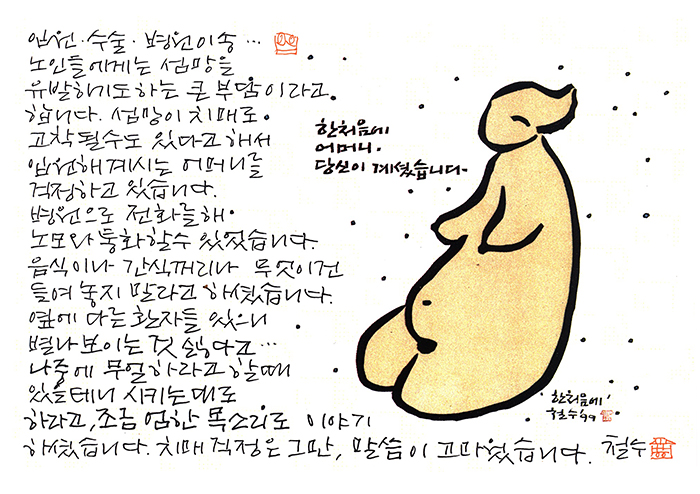 입원·수술·병원이송…
노인들에게는 섬망을
유발하기도하는 큰 부담이라고
합니다. 섬망이 치매로
고착될수도 있다고 해서
입원해계시는 어머니를
걱정하고 있습니다.
병원으로 전화를해
노모와 통화할수 있었습니다.
음식이나 간식꺼리나 무엇이건
들여놓지 말라고 하셨습니다.
옆에 다른환자들 있으니
별나보이는 것 싫다고…
나중에 무얼하라고 할때
있을테니 시키는대로
하라고, 조금 엄한 목소리로 이야기
하셨습니다. 치매걱정은 그만, 말씀이 고마웠습니다. 철수
한처음에
어머니.
당신이 계셨습니다.
'한처음에'
철수 '99